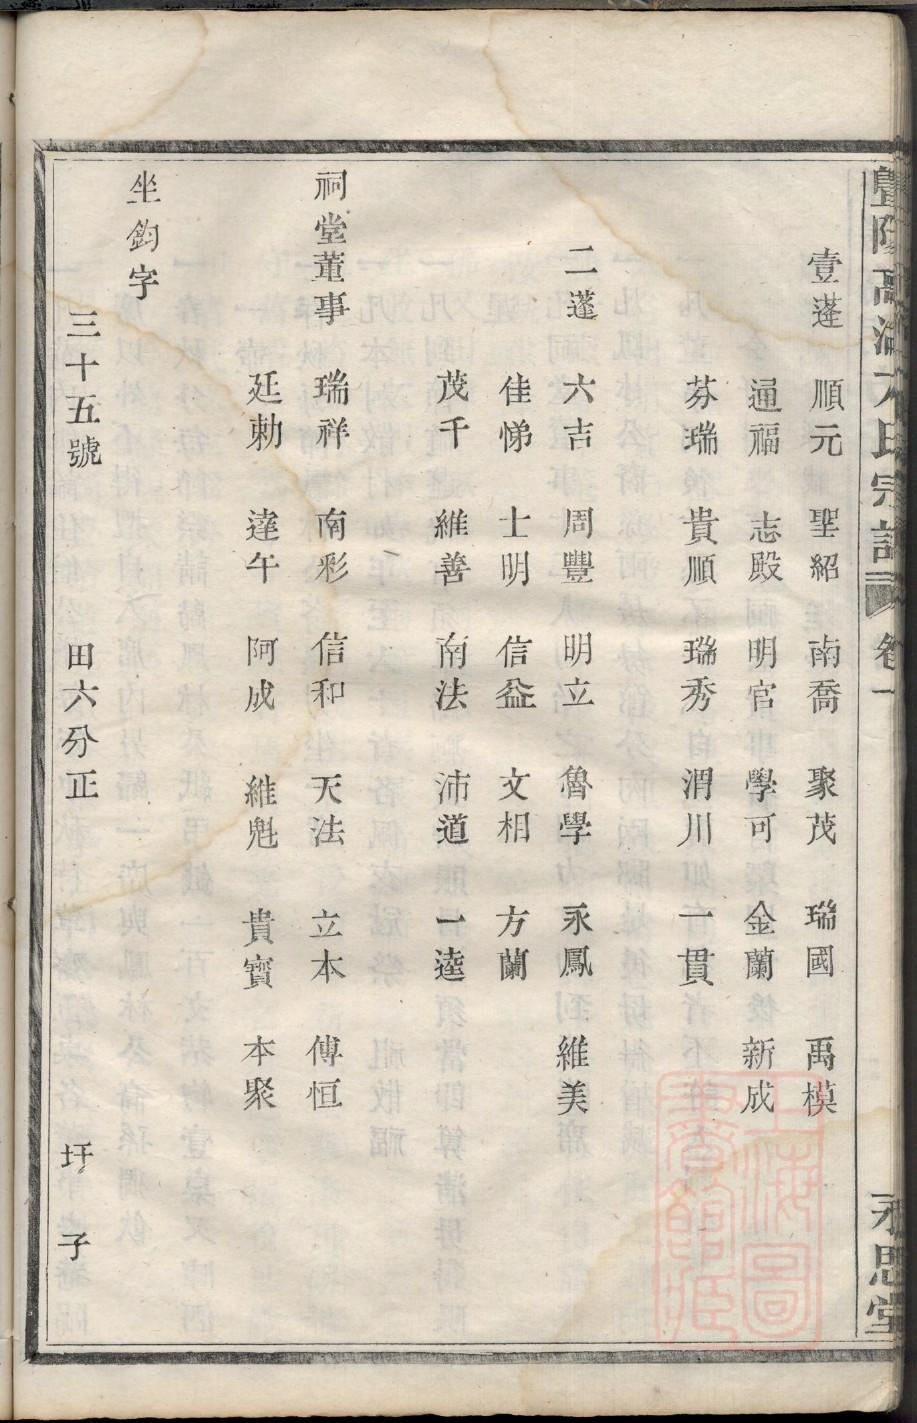 壹蓬 順元 聖紹 南喬 聚茂 瑞國 禹模
通福 志殿 明官 學可 金蘭 新成
芬瑞 貴順 瑞秀 渭川 一貫
二蓬 六吉 周豐 明立 魯學 永鳳 維美
佳悌 士明 信益 文相 方蘭
茂千 維善 南法 沛道 一逵
祠堂董事 瑞祥 南彩 信和 天法 立本 傅恒
廷勅 達午 阿成 維魁 貴寳 本聚
坐鈞字 三十五號 田六分正 圩子
宗譜 卷一 永思堂